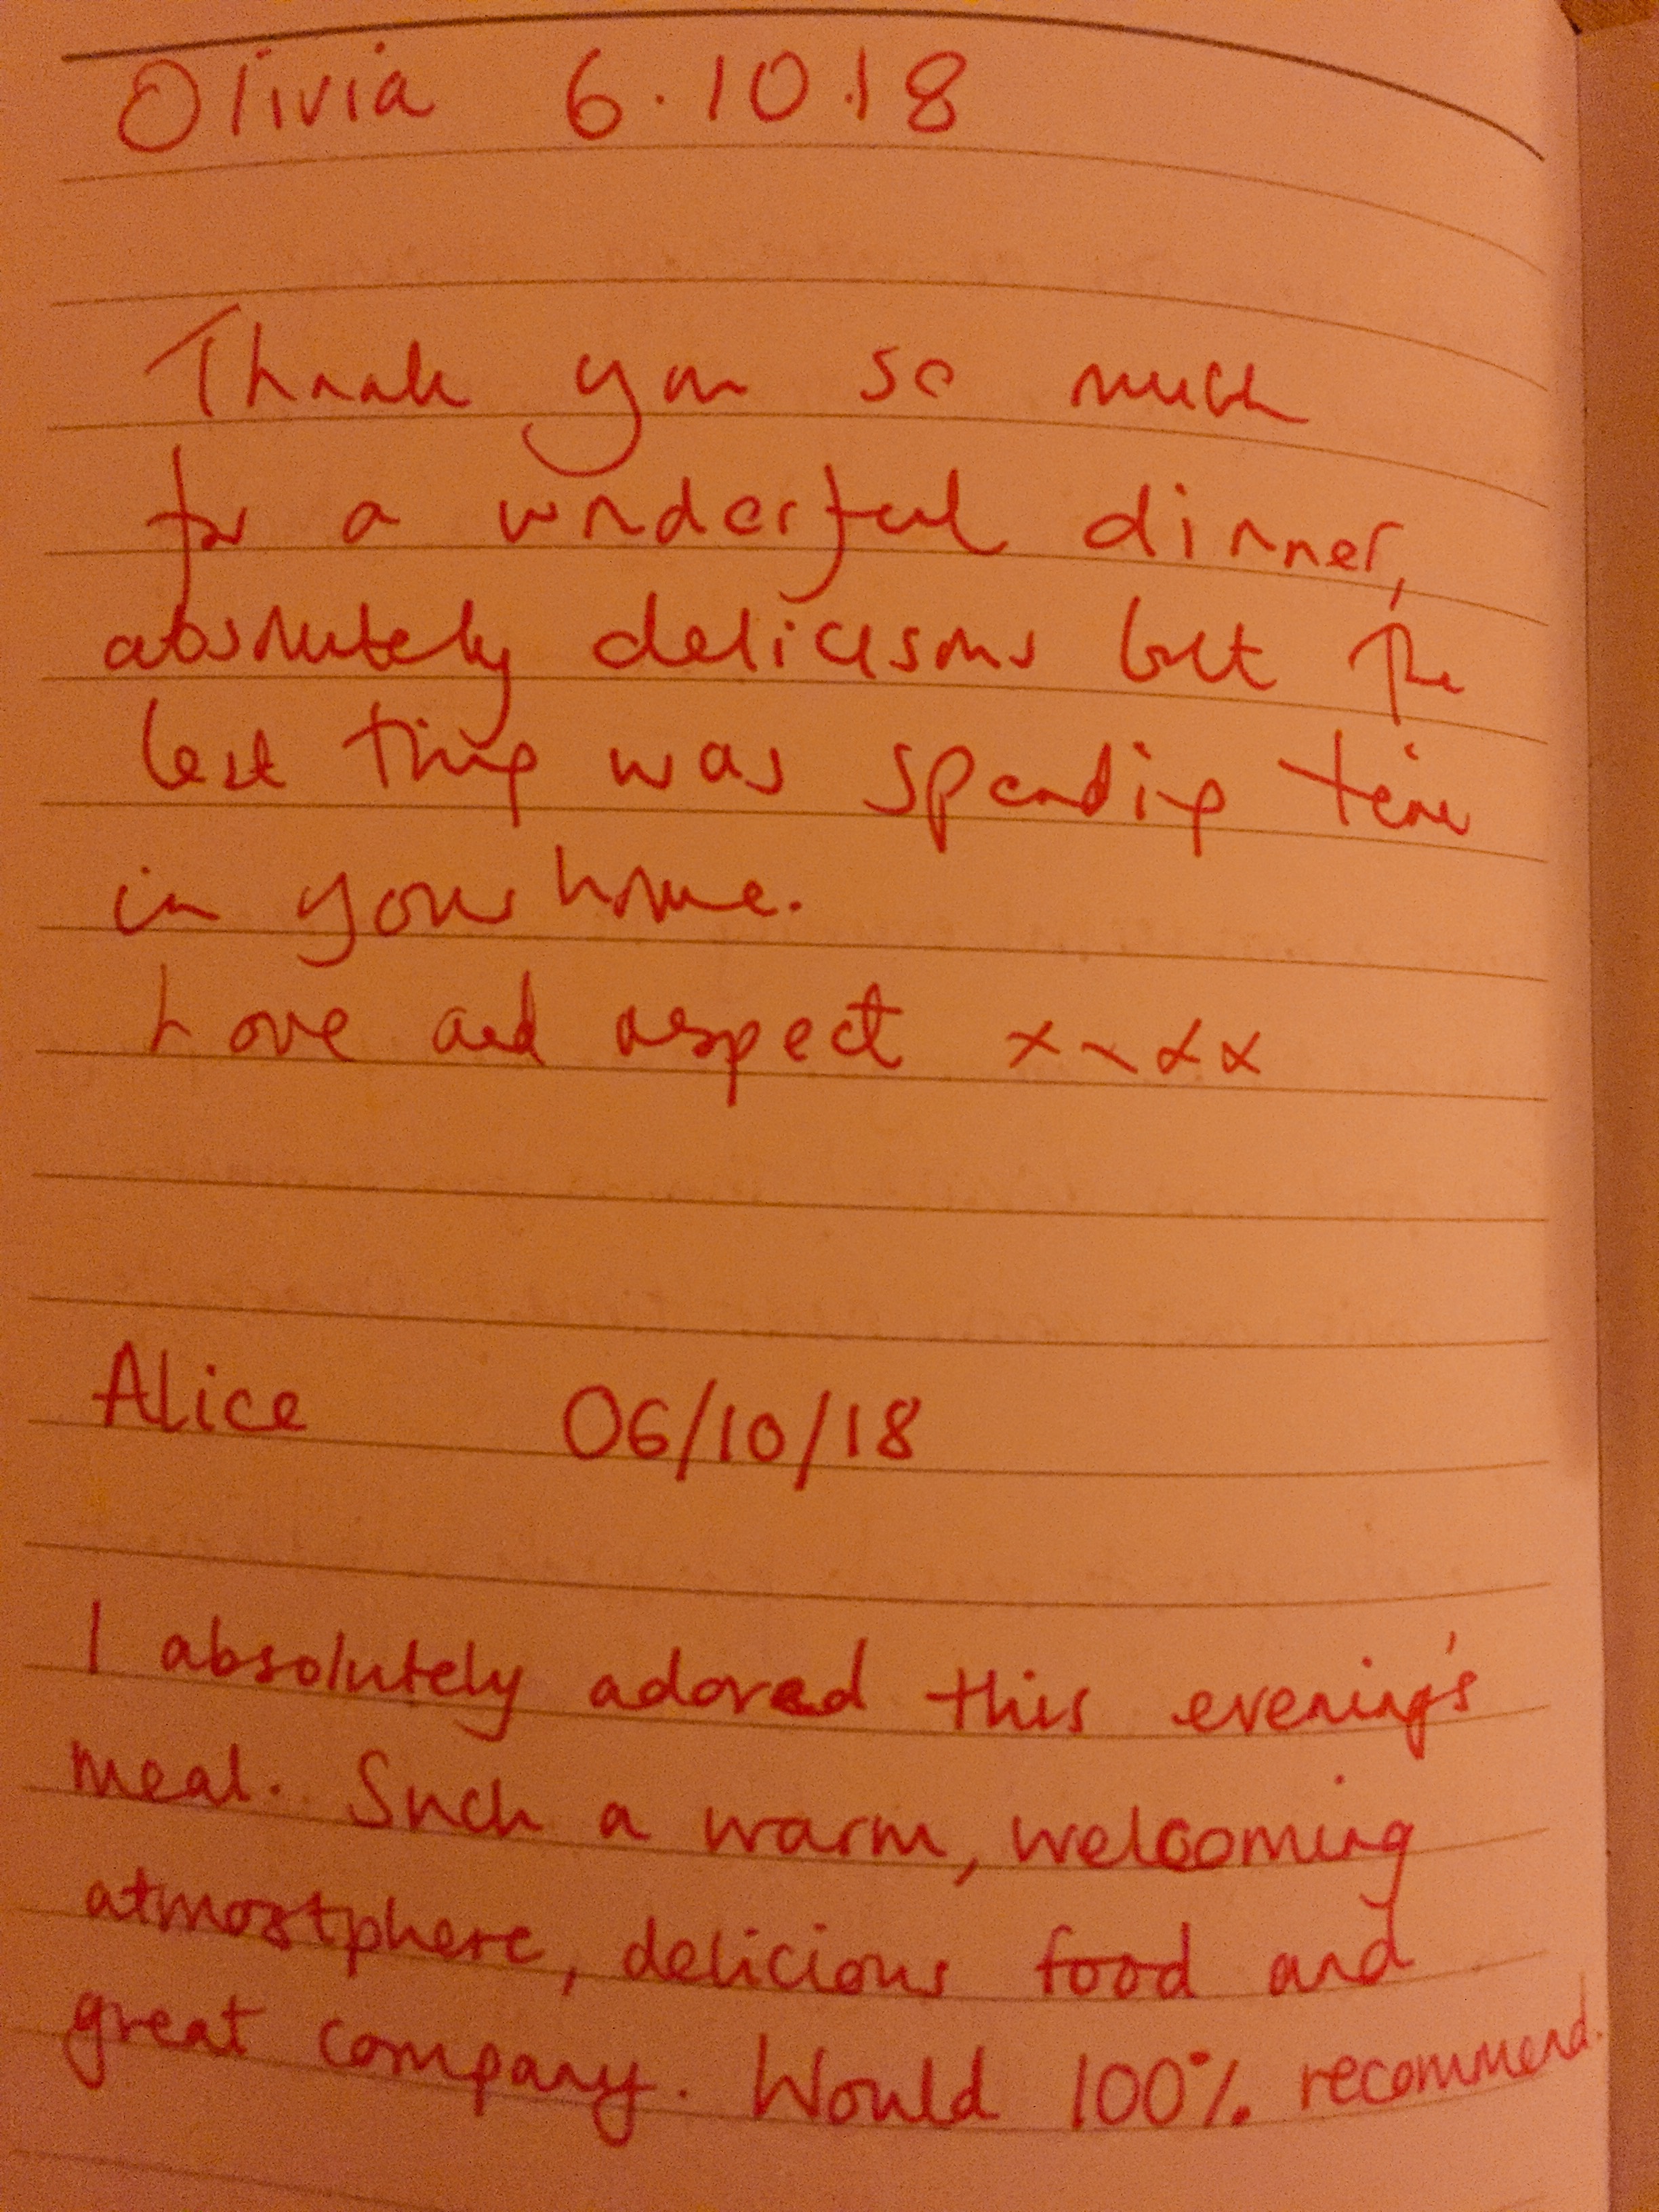 Olivia 6.10.18
Thank you so much
for a wonderful dinner,
absolutely delicisous but the
best thing was spending time
in your home.
Love and respect xxxx
Alice 06/10/18
I absolutely adored this evening's
meal. Such a warm, welcoming
atmostphere, delicious food and
great company. Would 100% recommend.